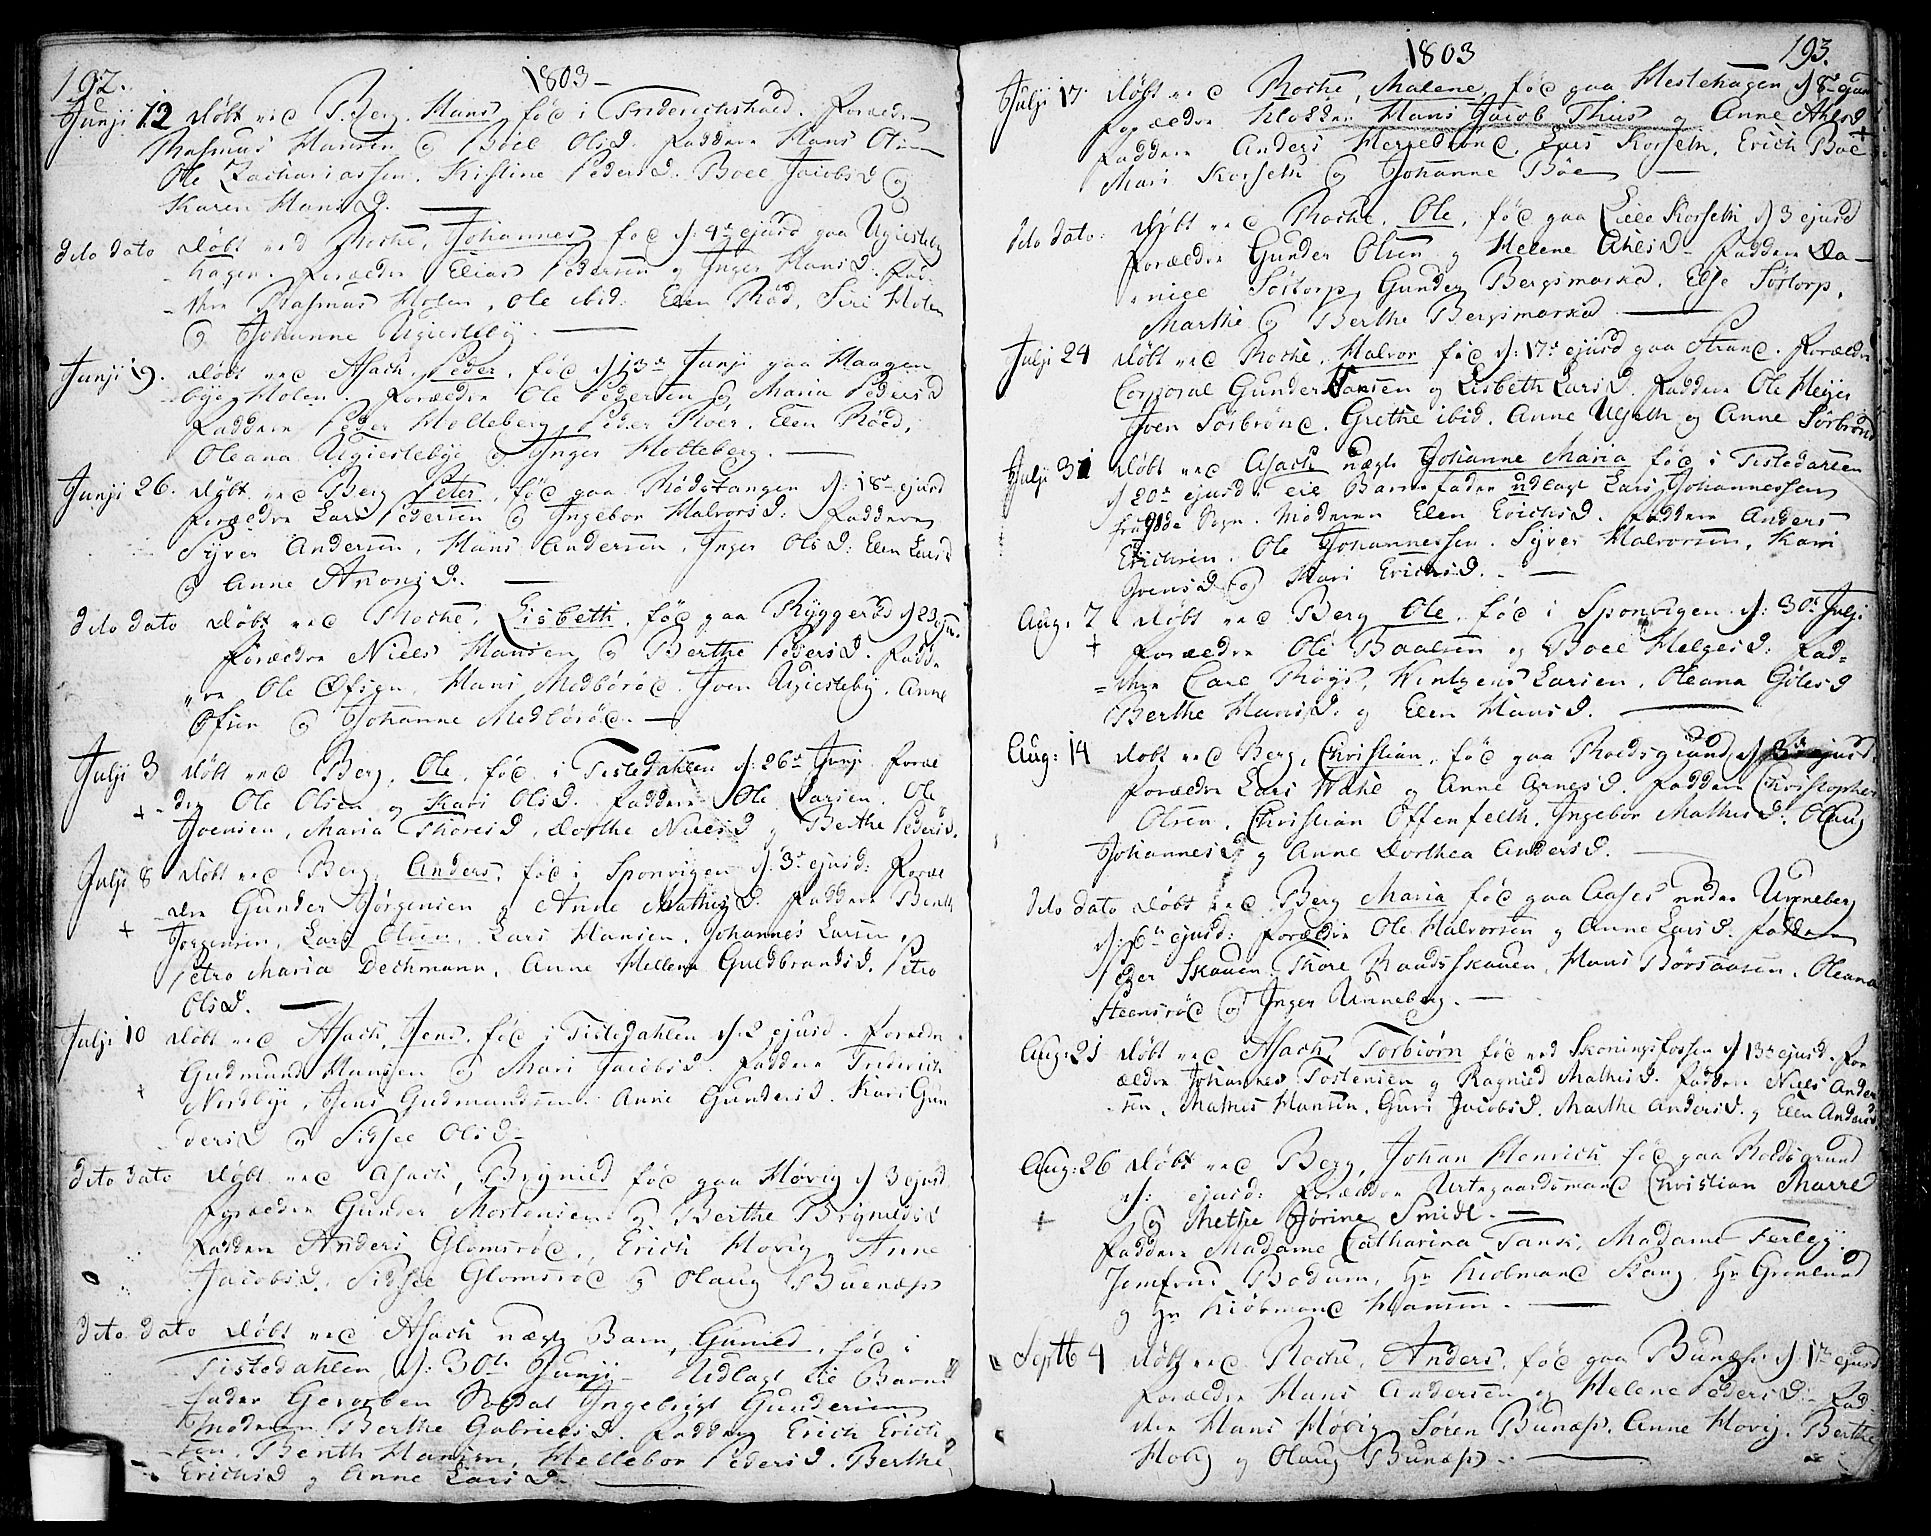 192.
1803-
Junji 12 døbt ved Berg, Hans, fød i Friderichshald. Forældre
Rasmus Hansen og Boel OlsD. Faddere Hans Olsen
Ole Zachariassen. Kistine PedersD. Boel JacobsD og
Karen HansD.
dito dato døbt ved Rocke, Johannes fød d: 4de ejusd paa Ugiesteby
hagen. Forældre Elias Pedersen og Inger HansD. Fad-
dere Rasmus Holen, Ole ibid: Elen Rød, Siri Holen
og Johanne Ugiesteby.
Junji 19. døbt ved Asach, Peder, fød d 13de Junji paa Haagen
bye Holen. Forældre Ole Pedersen og Maria PedersD
Faddere Peder Holleberg, Peder Skoer, Elen Røed,
Oleana Ugiestebye og Inger Holleberg.
Junji 26. døbt ved Berg Peter, fød paa Rødstangen d: 18de ejusd
Forældre Lars Pedersen og Ingebor HalvorsD: Faddere
Syver Andersen, Hans Andersen, Inger OlsD: Elen LarsD
og Anne AnonsD.
dito dato døbt ved Rocke, Lisbeth, fød paa Ryggerød d 23 ejus.
Forældre Niels Hansen og Berthe PedersD. Fadde
re Ole Øfsen, Hans Medbørød. Iven Ugiesteby, Anne
Øfsen og Johanne Medbørød.
Julji 3 døbt ved Berg, Ole, fød i Tistedahlen d: 26de Junji. Foræl
+ dre Ole Olsen og Kari OlsD. Faddere Ole Larsen. Ole
Joensen, Maria ThoresD, Dorthe NielsD og Berthe PedersD.
Julji 8 døbt ved Berg, Anders, fød i Sponvigen d. 3de ejusd: Foræl
dre Gunder Jørgensen og Anne MathisD. Faddere Benth
+ Jørgensen, Lars Olsen, Lars Hansen, Johannes Larsen,
Petro Maria Dechmann, Anne Hellena GuldbrandsD. Petro
OlsD.
Julji 10 døbt ved Asach, Jens, fød i Tistedahlen d. 2 ejusd. Foreldre
Gudmund Hanssen og Mari JacobsD. Faddere Friderich
+ Nordbye, Jens Gudmundsen. Anne GundersD. Kari Gun
dersD og Sidsee OlsD
dito dato døbt ved Asach, Brynild fød paa Høvig d 3 ejusd.
Forældre Gunder Mortensen og Berthe BrynildsD
Faddere Anders Glomsrød, Erich Hovig, Anne
JacobsD. Sidsee Glomsrød og Olaug Buenæss
dito dato døbt ved Asach uægte Barn, Gunild, fød i
Tistedahlen d: 30te Junji. Udlagt til Barne
fader Geworben Soldat Ingebrigt Gundersen
Moderen Berthe GabrielsD. Faddere Erich Erich
sen. Benth Hansen, Hellebor PedersD. Berthe
ErichsD og Anne LarsD.
1803 193.
Julji 17. døbt ved Rocke, Malene, fød paa Hestehagen d 8de ejusd
Forældre Klokker Hans Jacob Thus og Anne AhlsD
Faddere Anders Herrebrønd, Lars Korseth, Erich Bøe +
Mari Korseth og Johanne Bøe
dito dato: døbt ved Rocke, Ole, fød paa Lille Korseth d 3 ejusd
Forældre Gunder Olsen og Helene AhlsD. Faddere Da-
niel Søstorp, Gunder Bergsmarka, Else Søstorp,
Marthe og Berthe Bergsmarka.
Julji 24 døbt ved Rocke, Halvor fød d: 17de ejusd paa Strand. Forældre
Corporal Gunder Hansen og Lisbeth LarsD. Faddere Ole Heyer
Iven Sørbrønd. Grethe ibid. Anne Ulseth og Anne Sørbrønd
Julji 31 døbt ved Asach uægte Johanne Maria fød i Tistedalen
d 20de ejusd. til Barnefader udlagt Lars Johannessen
fra Idde Sogn. Moderen Elen ErichsD. Faddere Anders
Erichsen. Ole Johannessen. Syver Halvorsen. Kari
IvensD og Kari ErichsD.
Aug: 7 døbt ved Berg Ole, fød i Sponvigen d: 30te Julji
+ Forældre Ole Baalsen og Boel HelgesD: Fad-
dere Carl Røys, Wentzens Larsen, Oleana GølesD
Berthe HansD og Elen HansD.
Aug: 14 døbt ved Berg, Christian, fød paa Roedsgrund d ejusd
Forældre Lars Wahl og Anne ArnesD. Faddere Christopher
Olsen, Christian Offenfelth, Ingebor MathisD. Olaug
JohannesD og Anne Dorthea AndersD.
dito dato døbt ved Berg Maria fød paa Aases under Unneberg
d: 6te ejusd: Forældre Ole Halvorsen og Anne LarsD. Faddere
Peder Skauen, Thore Raadsskauen, Hans Børsaasen, Oleana
Steensrød og Inger Unneberg.
Aug: 21 døbt ved Asach, Torbiørn fød ved Skoningsfossen d 13de ejusd. For
ældre Johannes Tostensen og Ragnild MathisD. Faddere Niels Ander
sen, Mathis Hansen, Guri JacobsD. Marthe AndersD. og Elen AndersD
Aug: 26 døbt ved Berg, Johan Henrich fød paa Roldsgrund
d: ejusd: Forældre Urtegaardsmand Christian Marre
+ og Methe Jørine Smidt.
Faddere Madame Catharina Tank, Madame Ferley,
Jomfrue Bodum, Hr Kiøbmand Stang, Hr Grønlund
og Hr Kiøbmand Hansen.
Septb 4 døbt ved Rocke, Anders, fød paa Bunæss d: 1ste ejusd
Forældre Hans Andersen og Helene PedersD: Fad
dere Hans Høvig, Søren Bunæss, Anne Hovig. Berthe
Hovig og Olaug Bunæss.